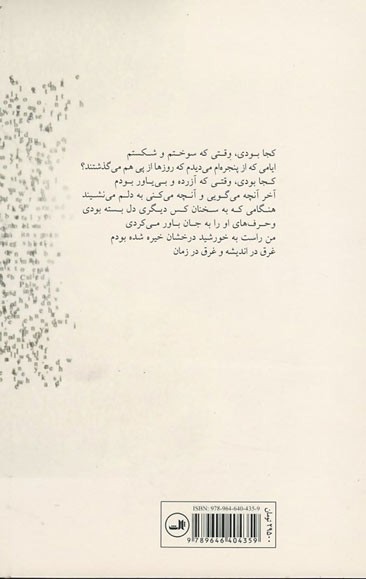 کجا بودی، وقتی که سوختم و شکستم
ایامی که از پنجره‌ام می‌دیدم که روزها از پی هم می‌گذشتند؟
کجا بودی، وقتی که آزرده و بی‌یاور بودم
آخر آنچه می‌گویی و آنچه می‌کنی به دلم می‌نشیند
هنگامی که به سخنان کس دیگری دل بسته بودی
و حرف‌های او را به جان باور می‌کردی
من راست به خورشید درخشان خیره شده بودم
غرق در اندیشه و غرق در زمان
ISBN: 978-964-640-435-9
9 789646 404359
۲۹۵۰۰ تومان